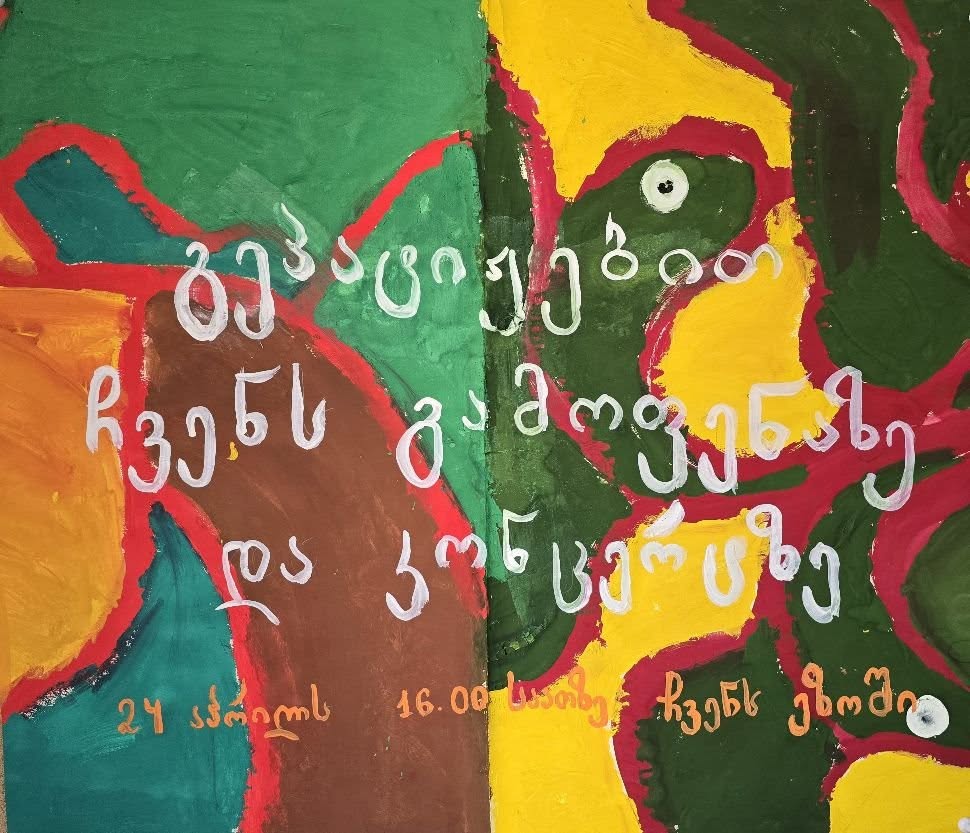 გეპატიჟებით
ჩვენს გამოფენაზე
და კონცერტზე
24 აპრილს 16.00 საათზე ჩვენს ეზოში